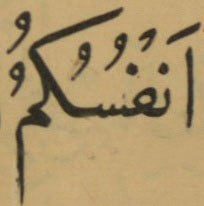 اَنْفُسُكُمُ